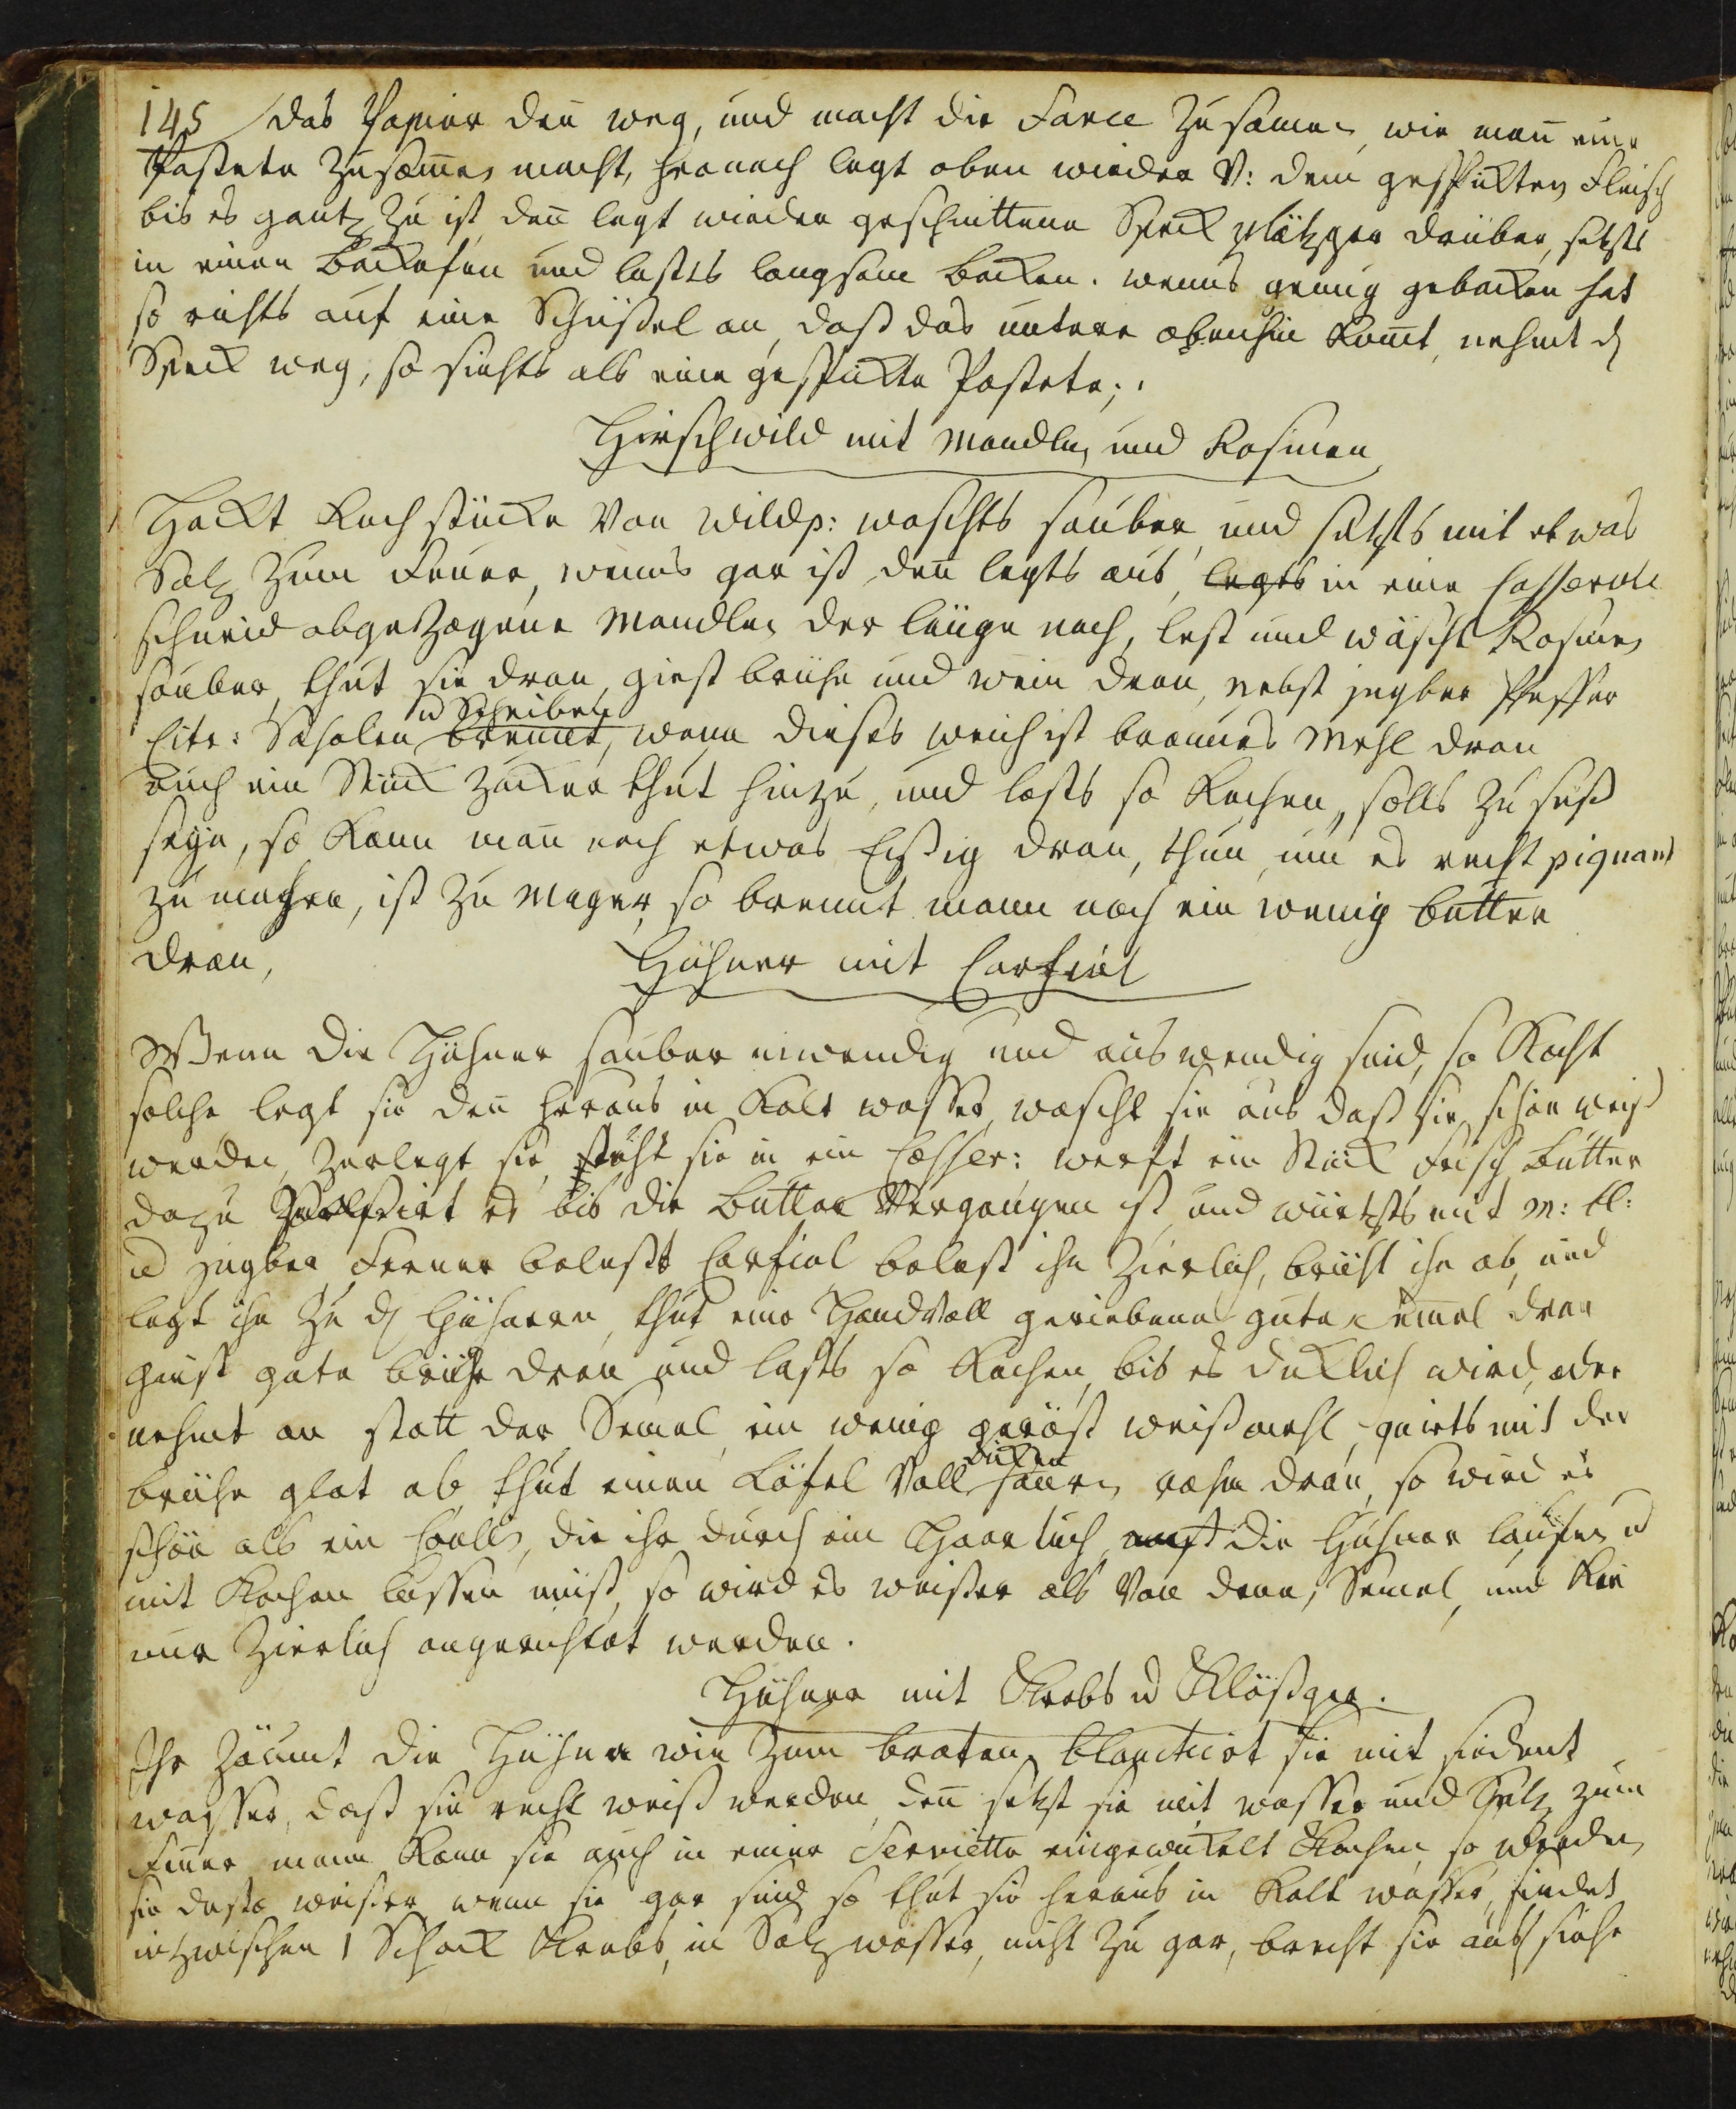 145 das Papier den̄ weg, und macht die Farce zusam̄en, wie man̄ eine
Pastete zusam̄en macht, hernach legt oben wieder v: dem gespikten Fleisch
bis es gantz zu ist, den̄ legt wieder geschnittene Speck plätzger drüber, setzts
in einen Backofen und lasts langsam backen. wenns genug gebacken hat
so richts auf eine Schüßel an, daß das untere obenhin kom̄t, nehmt d
Speck weg, so siehts als eine gespikte Pastete;.
Hirschwild mit Mandlen und Rosinen
Hackt Kochstücke von Wildp: waschts sauber und setzts mit etwas
Salz zum Feuer, wenns gar ist, den̄ legts aus, legts in eine Casserole
schneid abgezogene Mandlen der länge nach, lest und wäscht Rosinen
sauber, thut sie dran, giest brühe und wein dran, nebst jngber Pfeffer
Citr: Schalen u Scheiben brennt, wenn dieses weich ist braunes Mehl dran
auch ein Stück Zucker thut hinzu, und lasts so kochen, solls zu süß
seyn, so kann man̄ noch etwas Eßig dran, thun, um es recht piquant
zu machen, ist zu mager, so brennt mann noch ein wenig butter
dran,
Hühner mit Carfiol
Wenn die Hühner sauber inwendig und auswendig sind, so kocht
solche legt sie den̄ heraus in kalt wasser, wascht sie aus daß sie schön weiß
werden, zerlegt sie, thut sie in ein Casser: werft ein Stück frisch butter
dazu es bis die butter vergangen ist und würtzts mit M: bl:
u jngber, Ferner Carfiol belest ihn zierlich, brüht ihn ab, und
legt ihn zu d Hühnern, thut eine Handvoll geriebene gute semel dran
giest gute brühe dran und lasts so kochen, bis es dicklich wird, oder
nehmt an statt der Semel, ein wenig geröst weißmehl, quirts mit der
brühe glat ab, thut einen Löfel voll dicken sauren rahm dran, so wird es
schön als ein Coulis, die ihr durch ein Haartuch auf die Hühner laufen u
mit kochen lassen müst, so wird es weißer als von dem, Semel, und kan
nur zierlich angerichtet werden.
Hühner mit Krebs u Klößger.
Ihr zäumt die Hühner wie zum braten, blanchirt sie mit siedent
wasser, daß sie recht weiß werden, den̄ setzt sie mit wasser und Saltz zum
Feuer, mann kann sie auch in einer Serviette eingewickelt kochen, so werden
sie desto weißer, wenn sie gar sind, so thut sie heraus in kalt wasser, siedet
inzwischen 1 Schock Krebs, in Salzwasser, nicht zu gar, brecht sie aus, siehe